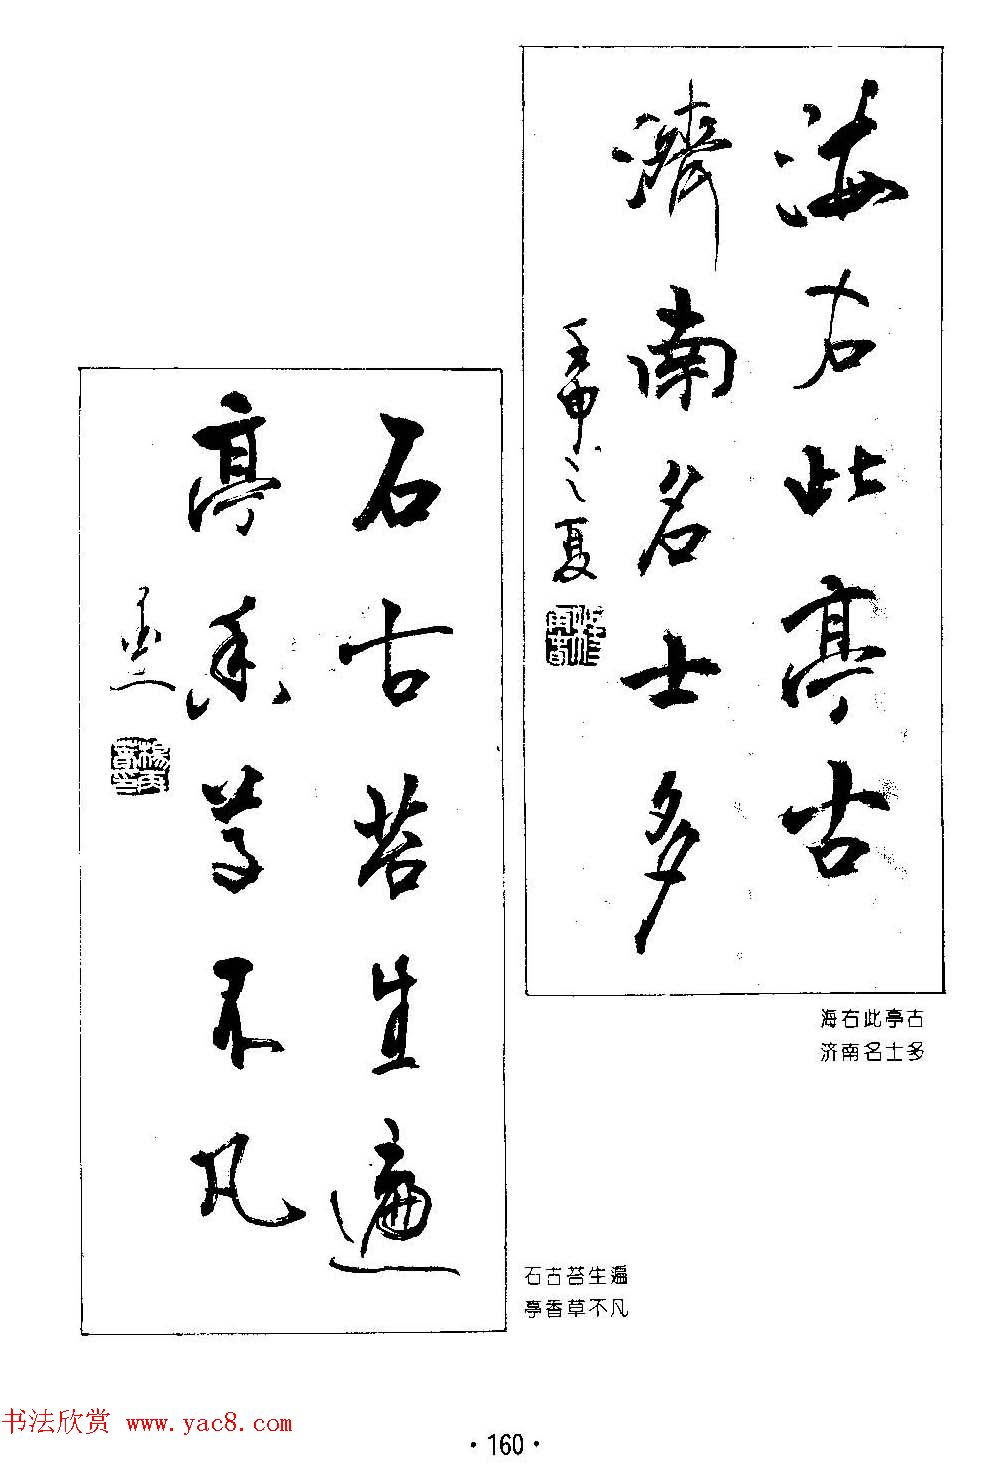 海右此亭古
濟南名士多
壬申之夏
海右此亭古
济南名士多
石古苔生遍
亭香草不凡
石古苔生遍
亭香草不凡
书法欣赏 www.yac8.com
·160·